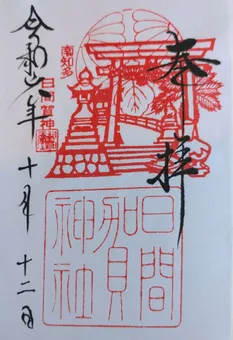 奉拝
南知多
日間賀神社
令和六年
十月
十二日
日間
賀
神社